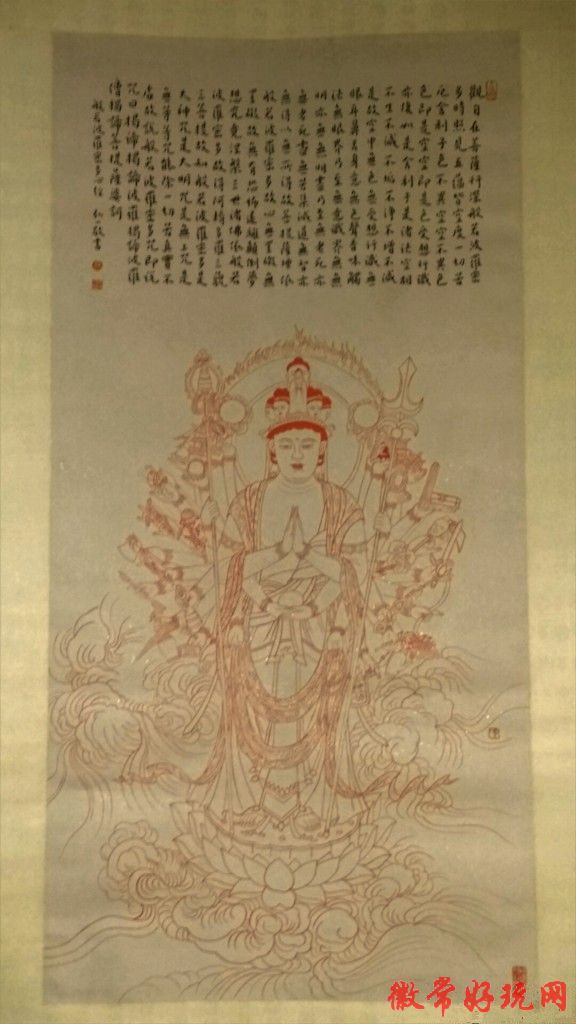 觀自在菩薩行深般若波羅蜜
多時照見五蘊皆空度一切苦
厄舍利子色不異空空不異色
色即是空空即是色受想行識
亦復如是舍利子是諸法空相
不生不滅不垢不淨不增不減
是故空中無色無受想行識無
眼耳鼻舌身意無色聲香味觸
法無眼界乃至無意識界無無
明亦無無明盡乃至無老死亦
無老死盡無苦集滅道無智亦
無得以無所得故菩提薩埵依
般若波羅蜜多故心無罣礙無
罣礙故無有恐怖遠離顛倒夢
想究竟涅槃三世諸佛依般若
波羅蜜多故得阿耨多羅三藐
三菩提故知般若波羅蜜多是
大神咒是大明咒是無上咒是
無等等咒能除一切苦真實不
虛故說般若波羅蜜多咒即說
咒曰揭諦揭諦波羅揭諦波羅
僧揭諦菩提薩婆訶
般若波羅蜜多心經 敬書
徽常好玩网